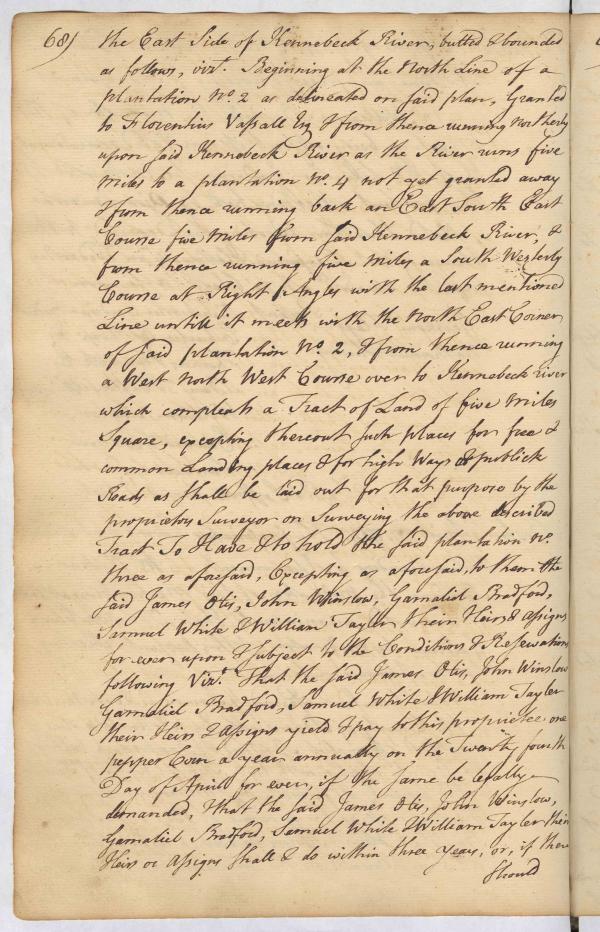 68) the East Side of Kennebeck River, butted & bounded
as follows, vizt. Beginning at the North Line of a
plantation No. 2 as delineated on said plan, Granted
to Florentius Vassall Esq & from thence running northerly
upon said Kennebeck River as the River runs five
miles to a plantation No. 4 not yet granted away
& from thence running back an East South East
Course five miles from said Kennebeck River, &
from thence running five miles a South Westerly
Course at Right Angles with the last mentioned
Line untill it meets with the North East Corner
of said plantation No. 2, & from thence running
a West North West Course over to Kennebeck river
which compleats a Tract of Land of five miles
Square, excepting thereout such places for free &
common Landing places & for high Ways & publick
Roads as shall be laid out for that purpose by the
proprietors Surveyor on Surveying the above described
Tract To Have & to hold the said plantation No.
three as aforesaid, Excepting as aforesaid, to them the
said James Otis, John Winslow, Gamaliel Bradford,
Samuel White & William Tayler their Heirs & Assigns
for ever upon & subject to the Conditions & Reservations
following Vizt. That the said James Otis, John Winslow
Gamaliel Bradford, Samuel White & William Tayler
their Heirs & Assigns yield & pay to this propriete one
pepper Corn a year annually on the Twenty fourth
Day of April for ever, if the same be legally
demanded, That the said James Otis, John Winslow,
Gamaliel Bradford, Samuel White & William Tayler their
Heirs or Assigns shall & do within three years, or, if there
should